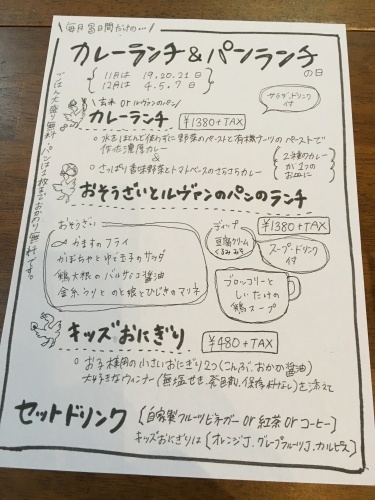 毎月3日間だけの…
カレーランチ&パンランチの日
11月は 19.20.21日
12月は 4.5.7日
サラダ、ドリンク付
玄米 or ルヴァンのパン
カレーランチ ¥1380+TAX
水をほとんど使わずに野菜のペーストと有機ナッツのペーストで
作る濃厚カレー
&
さっぱり香味野菜とトマトベースのさらさらカレー
2種類のカレーが1つのお皿に
おそうざいとルヴァンのパンのランチ
¥1380+TAX
おそうざい
かますのフライ
かぼちゃとゆで玉子のサラダ
鶏大根のバルサミコ醤油
金糸うりとのと娘とひじきのマリネ
ディップ
豆腐クリーム
くるみみそ
スープ・ドリンク付
ブロッコリーと
しいたけの
鶏スープ
キッズおにぎり ¥480+TAX
お子様用の小さいおにぎり2つ(こんぶ、おかか醤油)
大好きなウィンナー(無塩せき、発色剤、保存料なし)を添えて
セットドリンク
自家製フルーツビネガー or 紅茶 or コーヒー
キッズおにぎりは オレンジJ、グレープフルーツJ、カルピス
ごはん大盛り無料 パンは2枚までおかわり無料です。